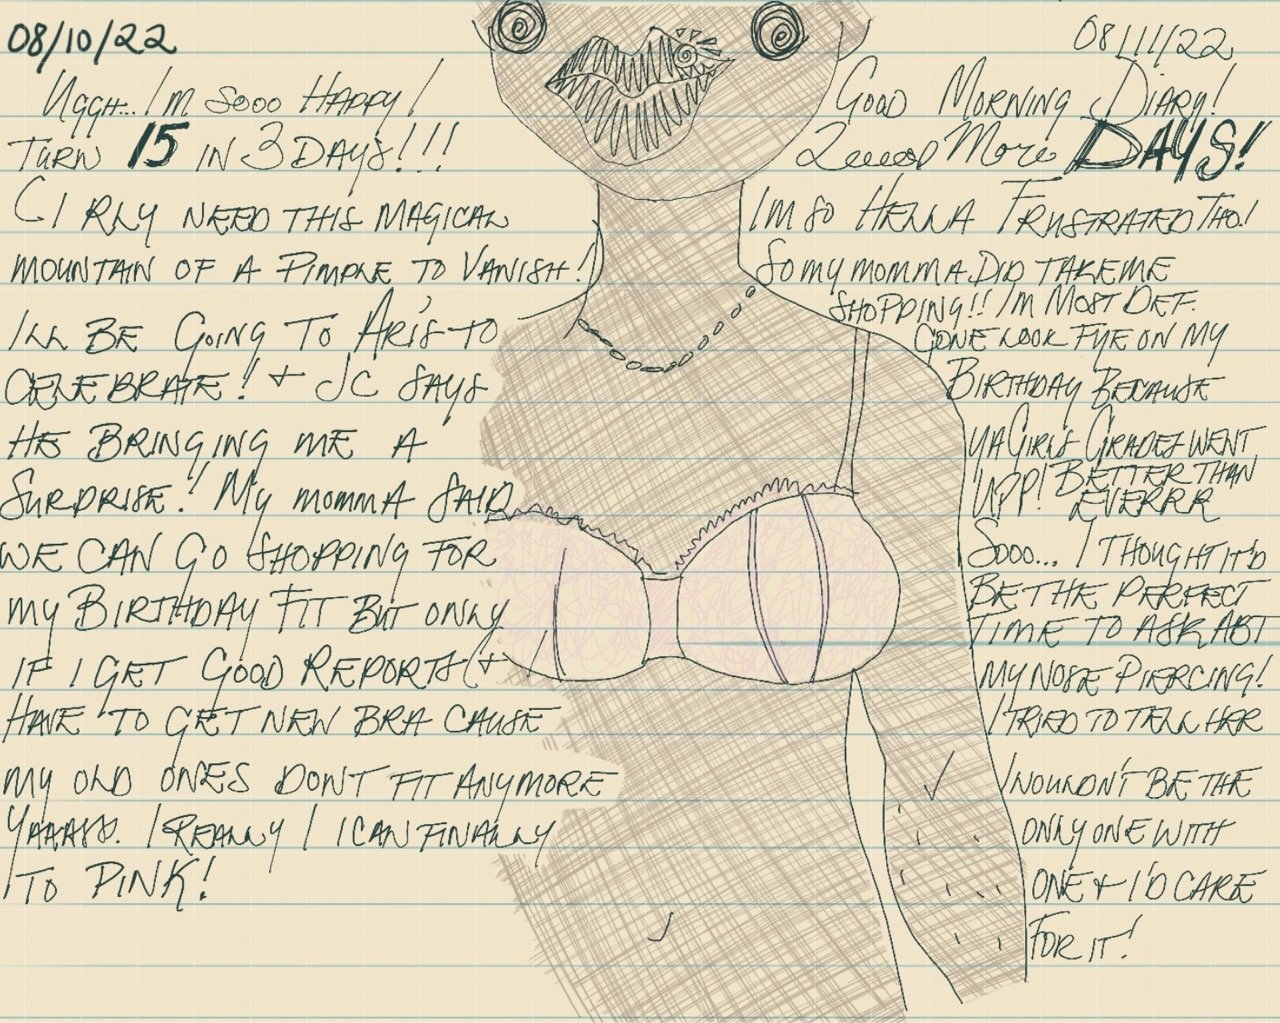 08/10/22
Uggh... I'm sooo Happy!
Turn 15 in 3 Days!!!
I rly need this magical
mountain of a pimple to vanish!
I'll be going to Ari's to
celebrate! + JC says
he bringing me a
surprise! My momma said
we can go shopping for
my birthday fit but only
if I get good reports +
have to get new bra cause
my old ones dont fit anymore
Yaaass. I really I I can finally
to Pink!
08/11/22
Good Morning Diary!
2 more Days!
I'm so hella frustrated tho!
So my momma did take me
shopping!! I'm most def.
gone look fye on my
birthday because
ya girl's grades went
upp! Better than
everrr
Sooo... I thought it'd
be the perfect
time to ask abt
my nose piercing!
I tried to tell her
I wouldn't be the
only one with
one + I'd care
for it!